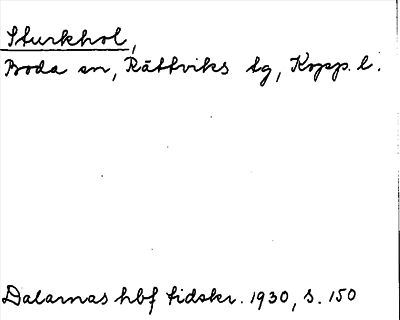 Sturkhol,
Boda sn, Rättviks tg, Kopp. l.
Dalarnas hbf tidskr. 1930, s. 150